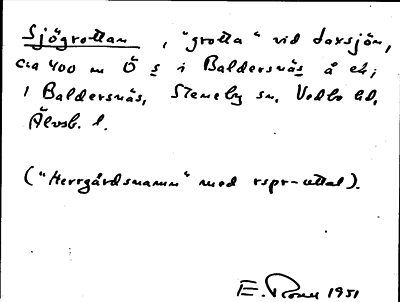 Sjögrottan, "grotta" vid Laxsjön,
cia 400 m Ö s i Baldersnäs å ek;
i Baldersnäs, Steneby sn, Vedbo hd,
Älvsb. l.
("Herrgårdsnamn" med rspr-uttal).
E. 1951